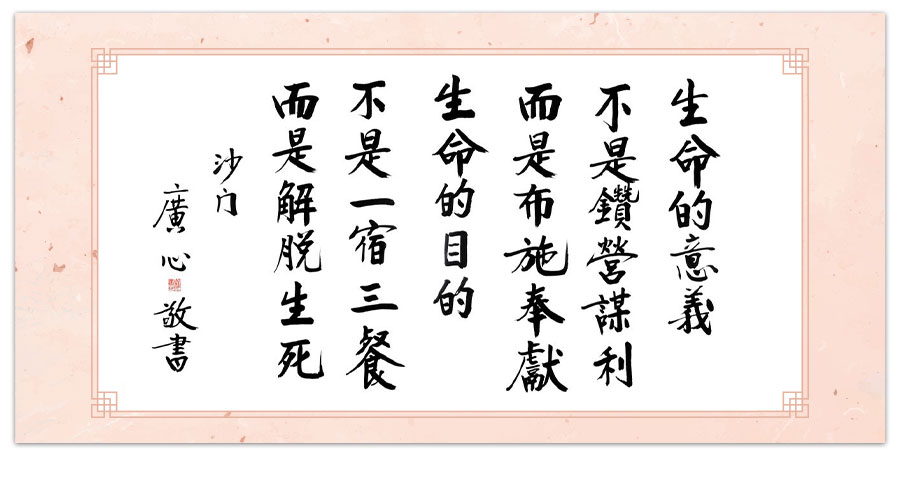 生命的意義
不是鑽營謀利
而是布施奉獻
生命的目的
不是一宿三餐
而是解脫生死
沙门
廣心 敬書